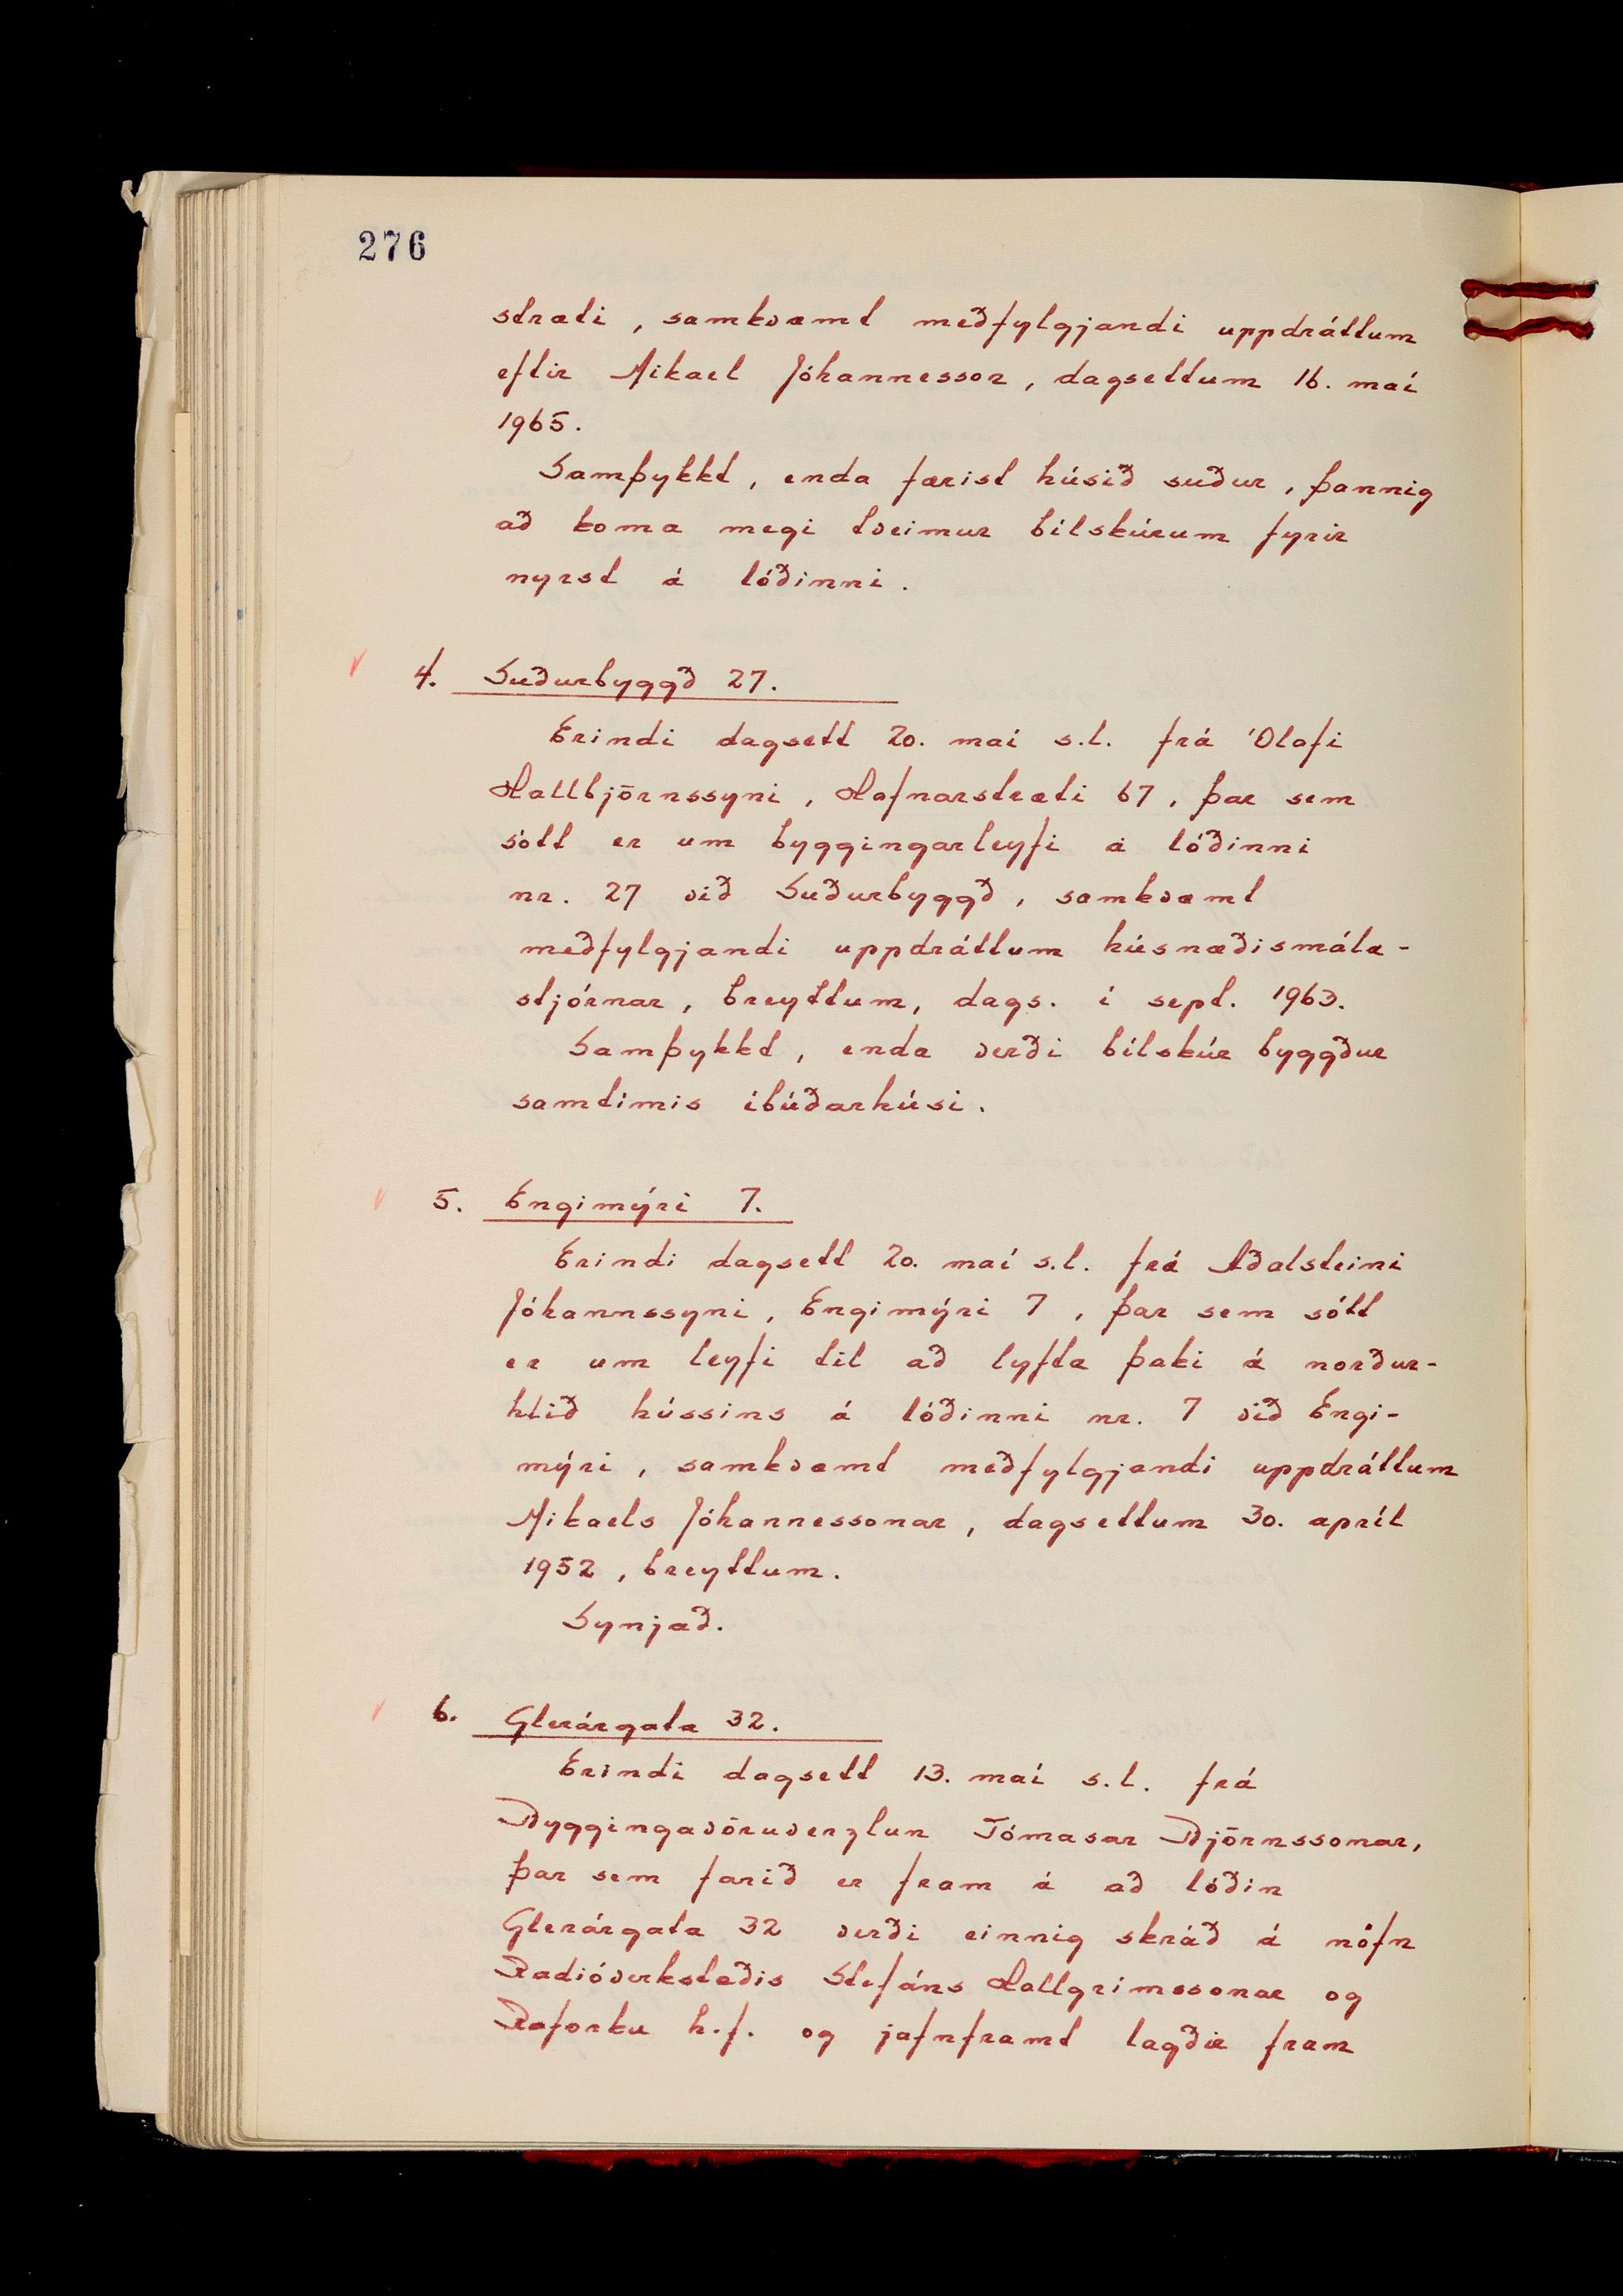 276
stræti, samkvæmt meðfylgjandi uppdráttum
eftir Mikael Jóhannesson, dagsettum 16. maí
1965.
Samþykkt, enda færist húsið suður, þannig
að koma megi tveimur bílskúrum fyrir
nyrst á lóðinni.
4. Suðurbyggð 27.
Erindi dagsett 20. maí s.l. frá Ólafi
Hallbjörnssyni, Hafnarstræti 67, þar sem
sótt er um byggingarleyfi á lóðinni
nr. 27 við Suðurbyggð, samkvæmt
meðfylgjandi uppdráttum húsnæðismála-
stjórnar, breyttum, dags. í sept. 1963.
Samþykkt, enda verði bílskúr byggður
samtímis íbúðarhúsi.
5. Engimýri 7.
Erindi dagsett 20. maí s.l. frá Aðalsteini
Jóhannssyni, Engimýri 7, þar sem sótt
er um leyfi til að lyfta þaki á norður-
hlið hússins á lóðinni nr. 7 við Engi-
mýri, samkvæmt meðfylgjandi uppdráttum
Mikaels Jóhannessonar, dagsettum 30. apríl
1952, breyttum.
Synjað.
6. Glerárgata 32.
Erindi dagsett 13. maí s.l. frá
Byggingavöruverzlun Tómasar Björnssonar,
þar sem farið er fram á að lóðin
Glerárgata 32 verði einnig skráð á nöfn
Radíóverkstæðis Stefáns Hallgrímssonar og
Raforku h.f. og jafnframt lagðir fram